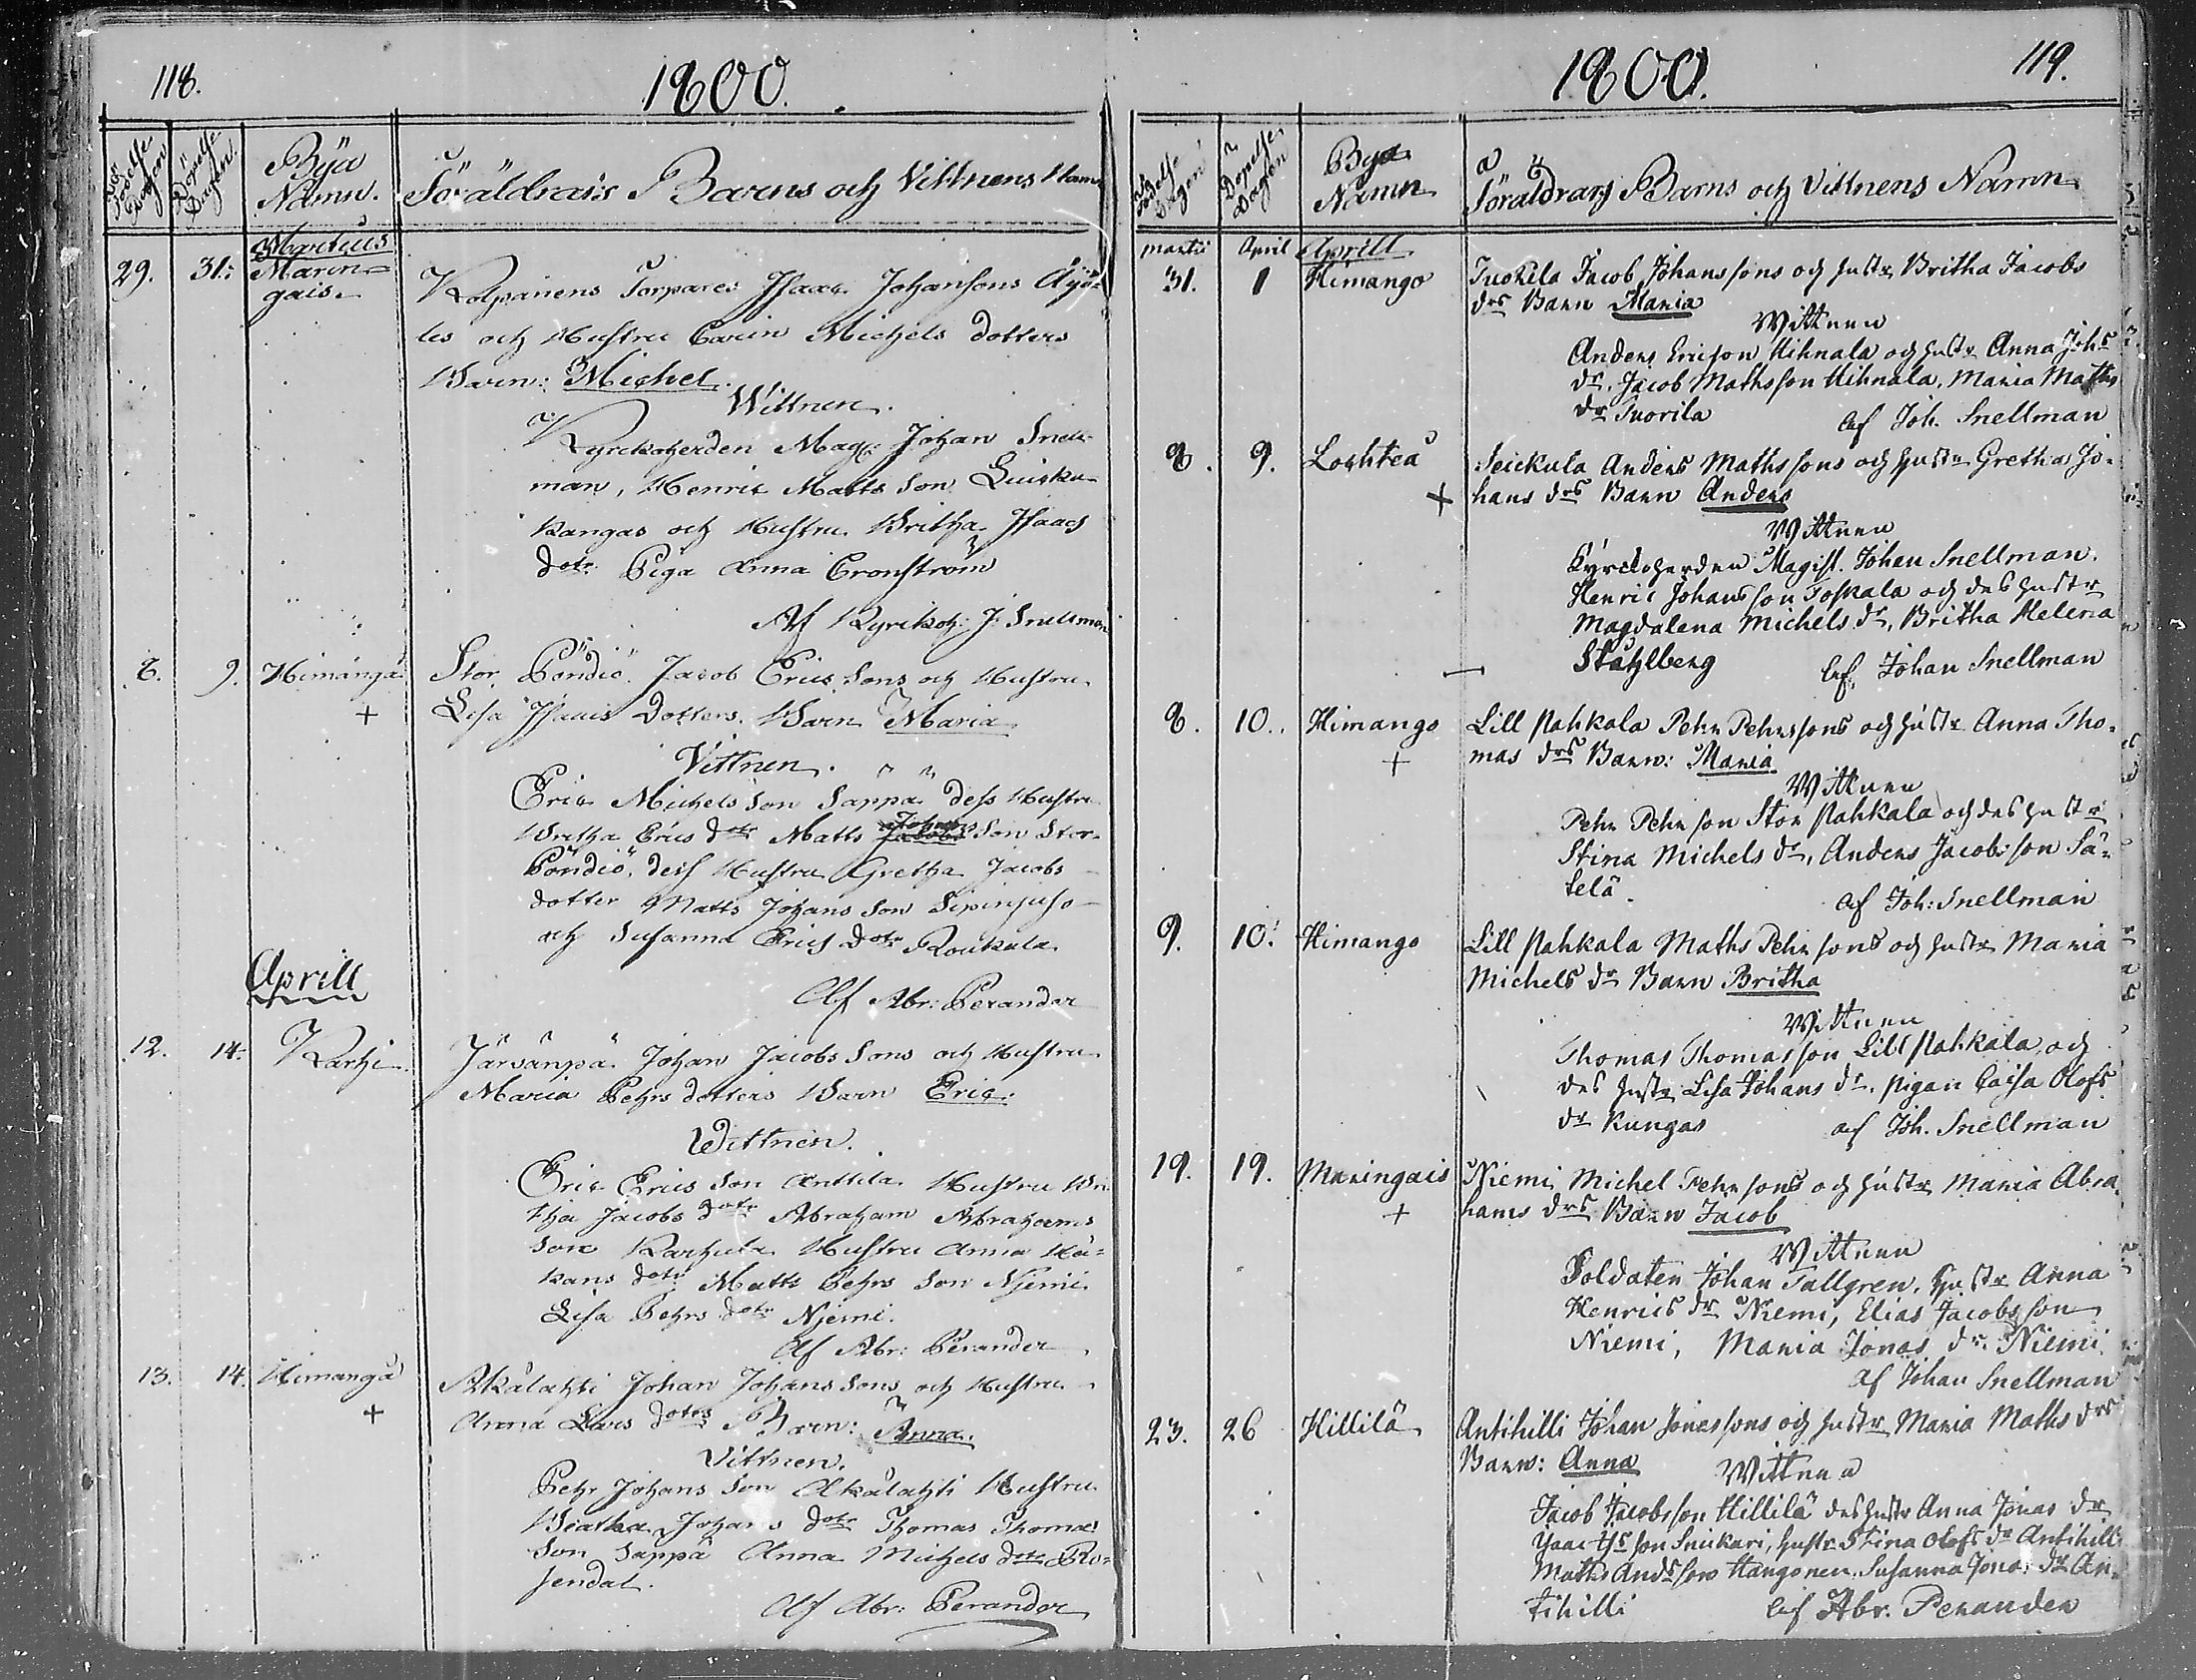 118.
1800.
Födelse Dagen
Döpelse Dagen
Bÿa Namn.
Föräldrars Barns och Vittnens Namn
Martius
29. 31. Marin=
gais.
Kolpanens Torpares Isaac Johansons Äyö=
les och Hustru Carin Michels dotters
Barn: Michel.
Wittnen.
Kyrckoherden Mag: Johan Snell=
man, Henric Matts Son Luisku=
kangas och Hustru Britha Isaacs
dotr Piga Anna Cronström
Af Kyrckoh: J: Snellman
8. 9. Himanga Stor Pöndiö Jacob Erics Sons och Hustru
+ Lisa Isaacs Dotters Barn Maria
Vittnen.
Eric Michels Son Sappa dess Hustru
Britha Erics dotr Matts Johans Son Stor=
Pöndiö, dess Hustru Gretha Jacobs
dotter Matts Johans Son Sipinjuso
och Susanna Erics dotr Roukala
Af Abr: Perander
Aprill
12. 14. Karhi Järvänpä Johan Jacobs Sons och Hustru
Maria Pehrs dotters Barn Eric:
Wittnen.
Eric Erics Son Anttila Hustru Bri
tha Jacobs dotr Abraham Abrahams
Son Karhula Hustru Anna Hå=
kans dotr Matts Pehrs Son Njemi
Lisa Pehrs dotr Njemi.
Af Abr: Perander
13. 14. Himangå Akålahti Johan Johans Sons och Hustru
+ Anna Lars dotrs Barn: Anna.
Vittnen.
Pehr Johans Son Akålahti Hustru
Beatha Johans dotr Thomas Thomas
Son Sappa Anna Michels dotr Ro=
sendal.
Af Abr: Perander
1800. 119.
Födelse Dagen
Döpelse Dagen
Bya Namn
Föräldrars Barns och Vittnens Namn
martii April Aprill
31. 1 Himango Tuorila Jacob Johanssons och hustr Britha Jacobs
drs Barn Maria
Wittnen
Anders Ericson Hihnala och hustr Anna Johs
dr, Jacob Mathsson Hihnala, Maria Maths
dr Tuorila Af Joh. Snellman
8. 9. Lochteå Seickula Anders Mathssons och hustr Gretha Jo=
+ hans drs Barn Anders
Wittnen
Kyrckoherden Magist. Johan Snellman.
Henric Johansson Toskala och des hustr
Magdalena Michels dr, Britha Helena
Ståhlberg Af Johan Snellman
8. 10. Himango Lill Pahkala Pehr Pehrssons och hustr Anna Tho=
+ mas drs Barn: Maria
Wittnen
Pehr Pehrson Stor Pahkala och des hustr
Stina Michels dr, Anders Jacobsson Sä=
telä. Af Joh: Snellman
9. 10. Himango Lill Pahkala Maths Pehrsons och hustr Maria
Michels dr Barn Britha
Wittnen
Thomas Thomasson Lill Pahkala, och
des hustr Lisa Johans dr, pigan Caisa Olofs
dr Kungas af Joh. Snellman
19. 19. Maringais Niemi Michel Pehrsons och hustr Maria Abra
+ hams drs Barn Jacob
Wittnen
Soldaten Johan Tallgren, hustr Anna
Henrics dr Niemi, Elias Jacobsson
Niemi, Maria Jonas dr Niemi
Af Johan Snellman
23. 26 Hillilä Antihilli Johan Jonassons och hustr Maria Maths drs
Barn: Anna Wittnen
Jacob Jacobsson Hillilä des hustr Anna Jonas dr
Isac Is son Snickari, hustr Stina Olofs dr Antihilli
Maths Andsson Hangonen, Susanna Jona: dr An=
tihilli Af Abr. Perander